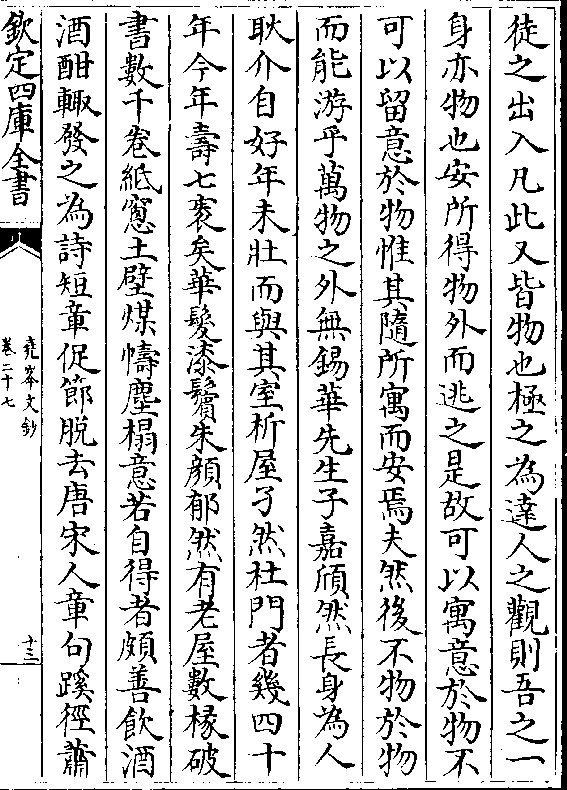 徒之出入凡此又皆物也極之為達人之觀則吾之一
身亦物也安所得物外而逃之是故可以寓意於物不
可以留意於物惟其隨所寓而安焉夫然後不物於物
而能游乎萬物之外無錫華先生子嘉頎然長身為人
耿介自好年未壯而與其室析屋孑然杜門者幾四十
年今年壽七袠矣華髮漆鬢朱顔郁然有老屋數椽破
書數千卷紙窻土壁煤幬塵榻意若自得者頗善飲酒
酒酣輙發之為詩短章促節脱去唐宋人章句蹊徑蕭
欽定四庫全書
堯峯文鈔
卷二十七
十三